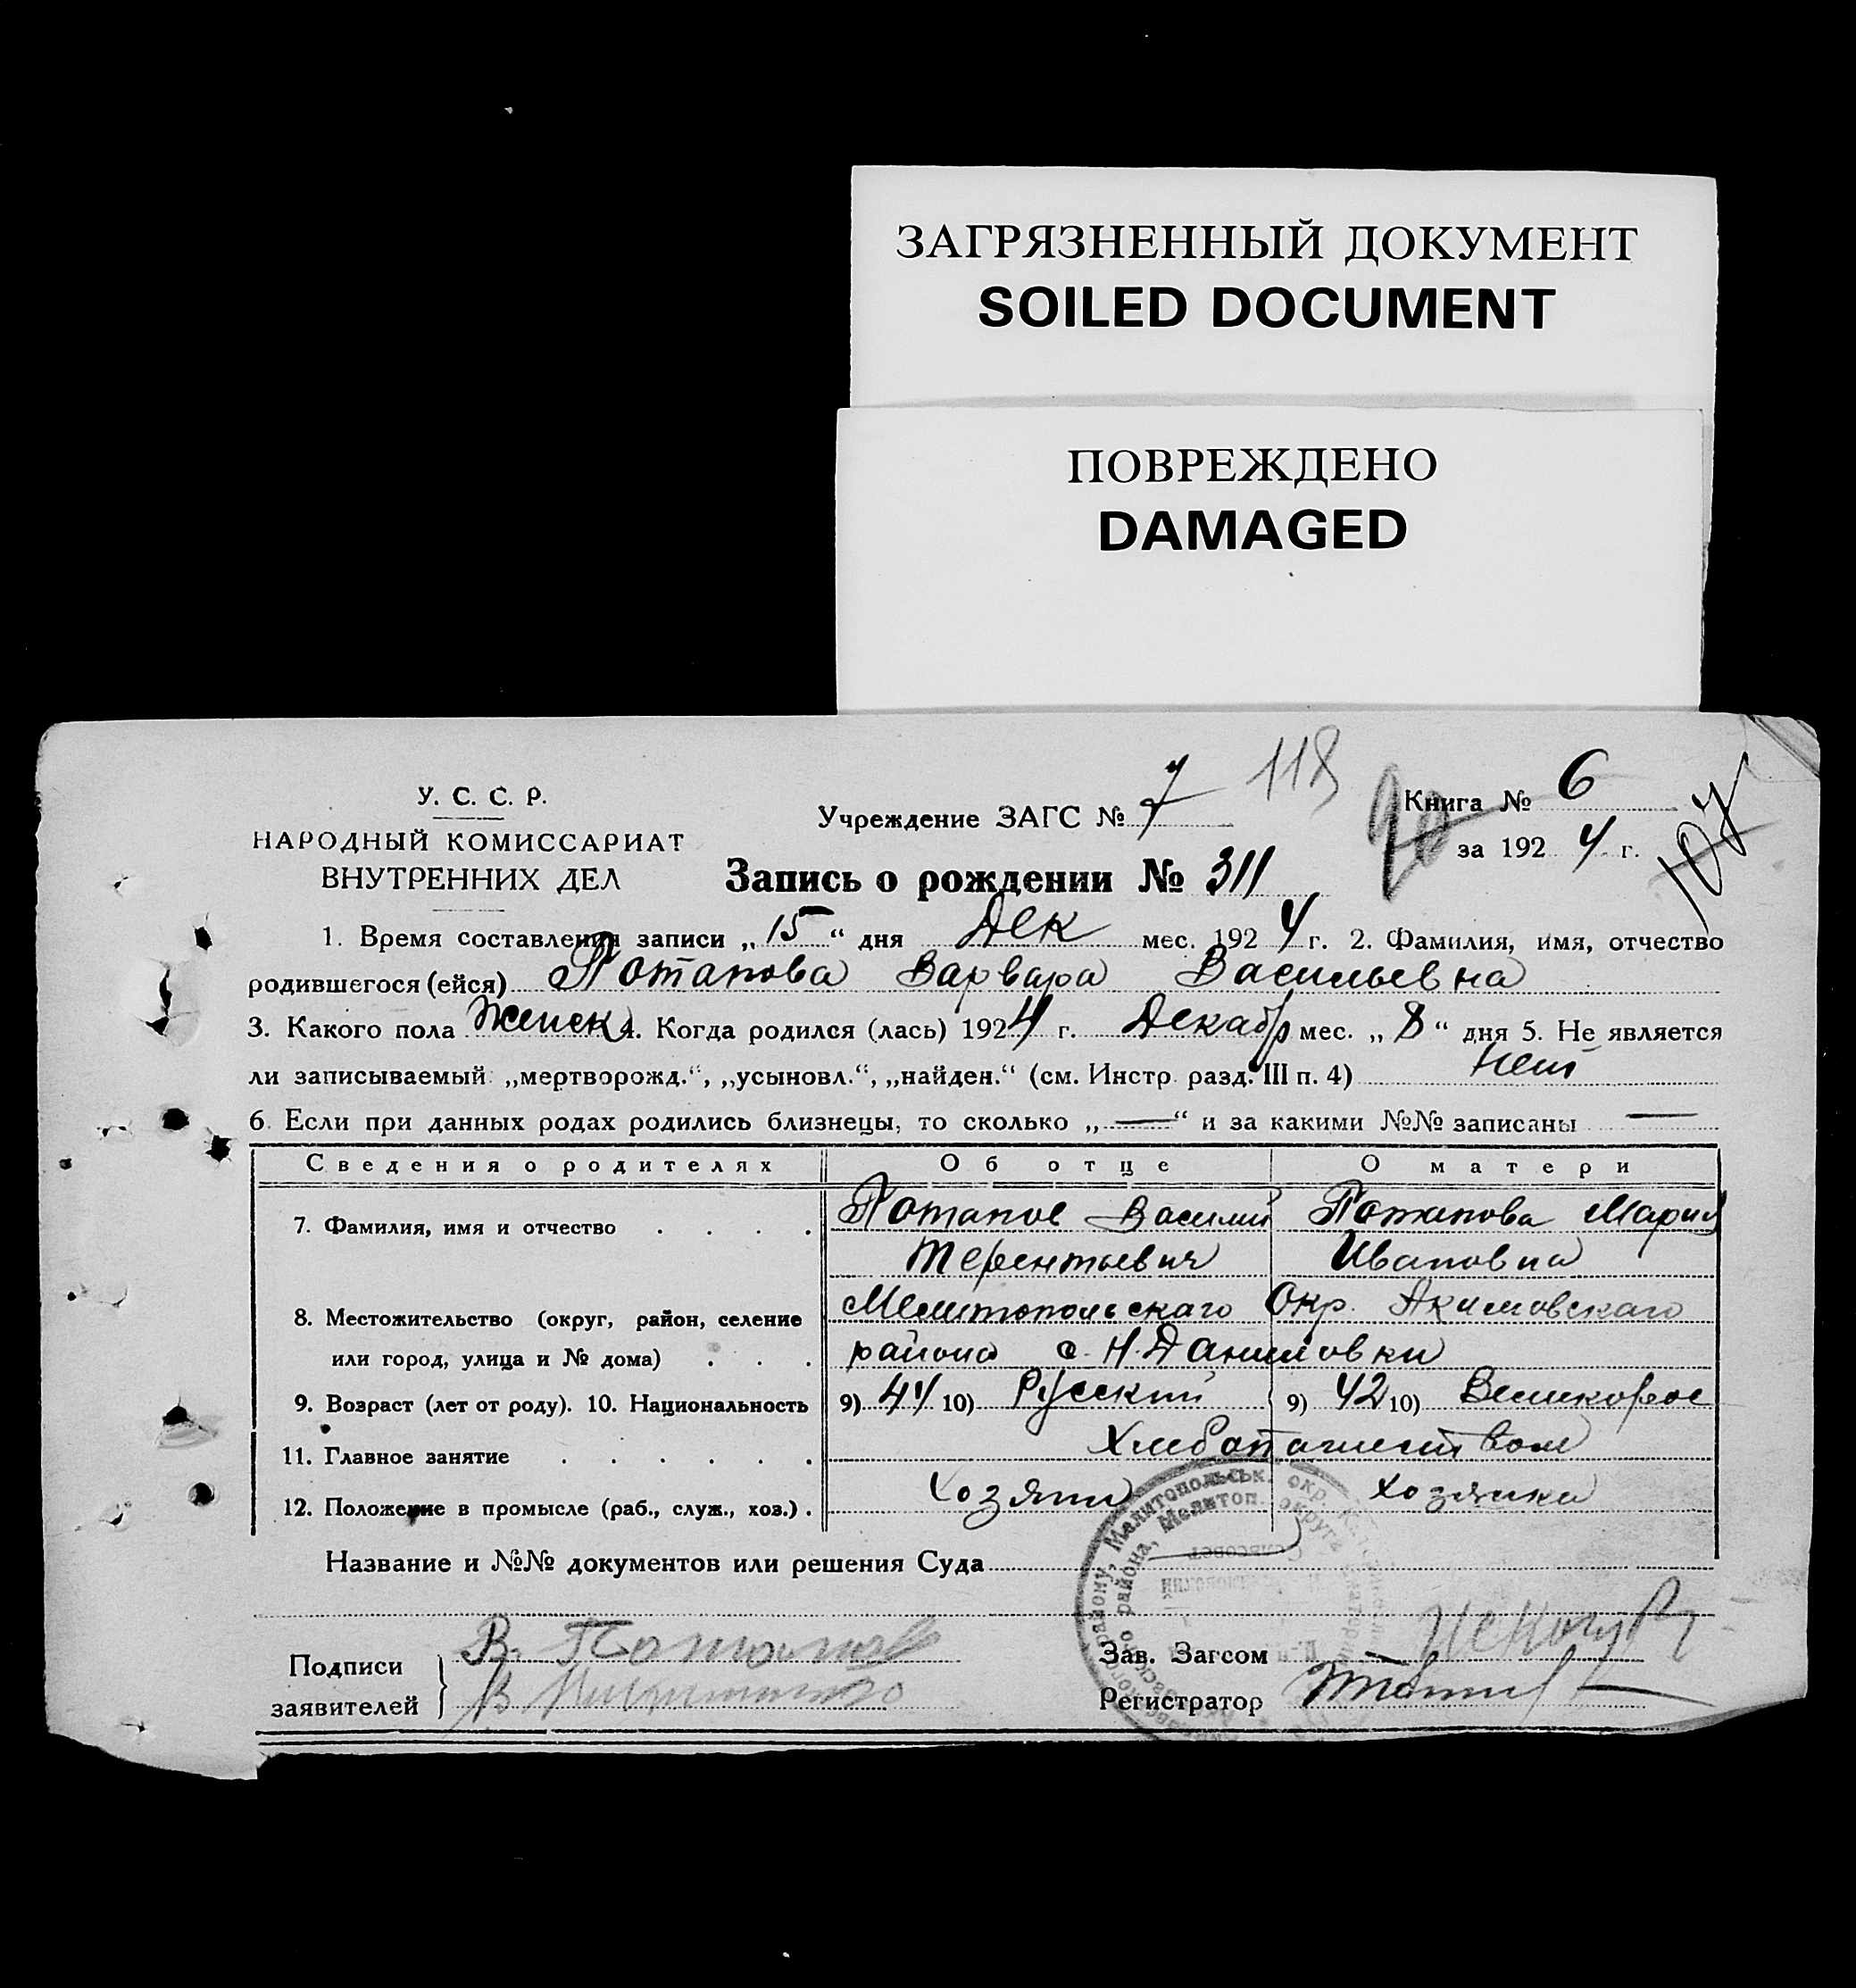 ЗАГРЯЗНЕННЫЙ ДОКУМЕНТ
SOILED DOCUMENT
ПОВРЕЖДЕНО
DAMAGED
У. С. С. Р.
НАРОДНЫЙ КОМИССАРИАТ
ВНУТРЕННИХ ДЕЛ
Учреждение ЗАГС № 7
118
Книга № 6
90
за 1924 г.
107
Запись о рождении № 311
1. Время составления записи „15“ дня Дек мес. 1924 г. 2. Фамилия, имя, отчество
родившегося (ейся) Потапова Варвара Васильевна
3. Какого пола Женск 4. Когда родился (лась) 1924 г. Декабр мес. „8“ дня 5. Не является
ли записываемый „мертворожд.“, „усыновл.“, „найден.“ (см. Инстр. разд. III п. 4) Нет
6. Если при данных родах родились близнецы, то сколько „—“ и за какими №№ записаны —
Сведения о родителях Об отце О матери
7. Фамилия, имя и отчество . . . . Потапов Василий Потапова Мария
Терентьевич Ивановна
8. Местожительство (округ, район, селение Мелитопольскаго Окр. Акимовскаго
или город, улица и № дома) . . . района с. Н. Даниловки
9. Возраст (лет от роду). 10. Национальность 9) 44 10) Русский 9) 42 10) Великорос
11. Главное занятие . . . . . . Хлебопашеством
12. Положение в промысле (раб., служ., хоз.) . Хозяин Хозяйка
Название и №№ документов или решения Суда
Мелитопольськ. окр.
района, Мелитоп. округа
Подписи
заявителей
В. Потапов
Зав. Загсом
Регистратор